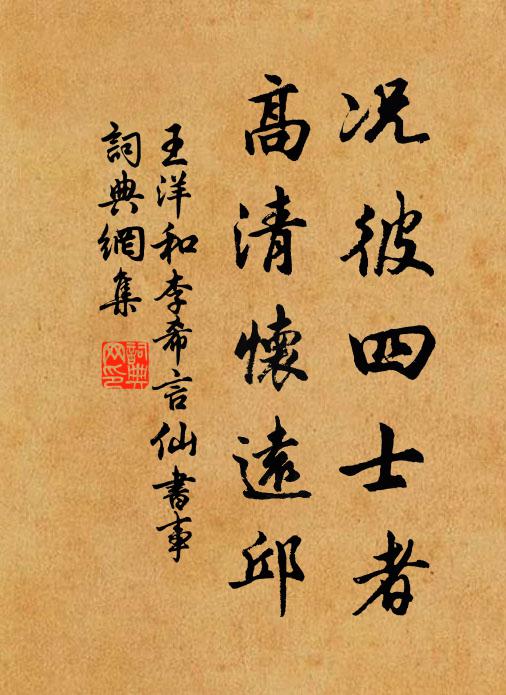 况彼四士者
高清懷遠邱
王洋和李希言仙書事
詞典網集
詞典网印